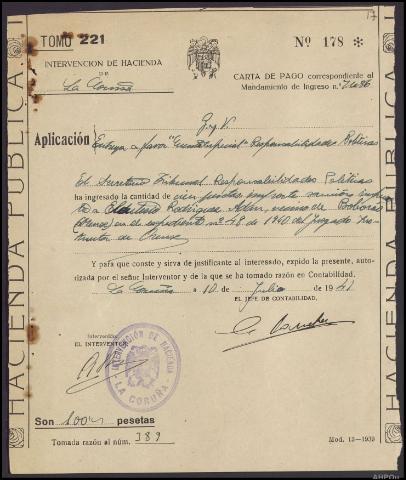 17
TOMO 221
Nº 178
INTERVENCION DE HACIENDA
DE
La Coruña
CARTA DE PAGO correspondiente al
Mandamiento de Ingreso n.º
Aplicación
Entrega a favor "Cuenta Especial" Responsabilidades Políticas
El Secretario Tribunal Responsabilidades Políticas
ha ingresado la cantidad de cien pesetas importe sanción
a Rodríguez vecino de
(Orense) en el expediente nº 48 de 1940 del Juzgado
de Orense
Y para que conste y sirva de justificante al interesado, expido la presente, auto-
rizada por el señor Interventor y de la que se ha tomado razón en Contabilidad.
La Coruña a 10 de Julio de 1941
EL JEFE DE CONTABILIDAD,
Intervenido:
EL INTERVENTOR,
INTERVENCIÓN DE HACIENDA
LA CORUÑA
Son 100 pesetas
Tomada razón al núm. 389
Mod. 13-1939
HACIENDA PUBLICA
HACIENDA PUBLICA
AHPOu